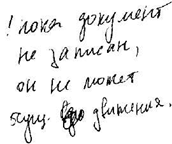 ! пока документ
не записан,
он не может
осущ. движения.